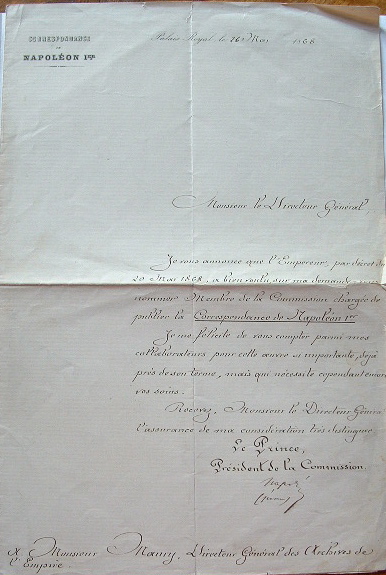 CORRESPONDANCE
DE
NAPOLÉON Ier
Palais Royal le 26 Mai 1868
Monsieur le Directeur Général,
Je vous annonce que l'Empereur, par décret du
20 Mai 1868, a bien voulu, sur ma demande, vous
nommer Membre de la Commission chargée de
publier la Correspondance de Napoléon 1er
Je me félicite de vous compter parmi mes
collaborateurs pour cette œuvre si importante, déjà
près de son terme, mais qui nécessite cependant encore
vos soins.
Recevez, Monsieur le Directeur Général
l'assurance de ma considération très distinguée
Le Prince,
Président de la Commission.
Napoléon
A Monsieur Maury, Directeur Général des Archives de
l'Empire